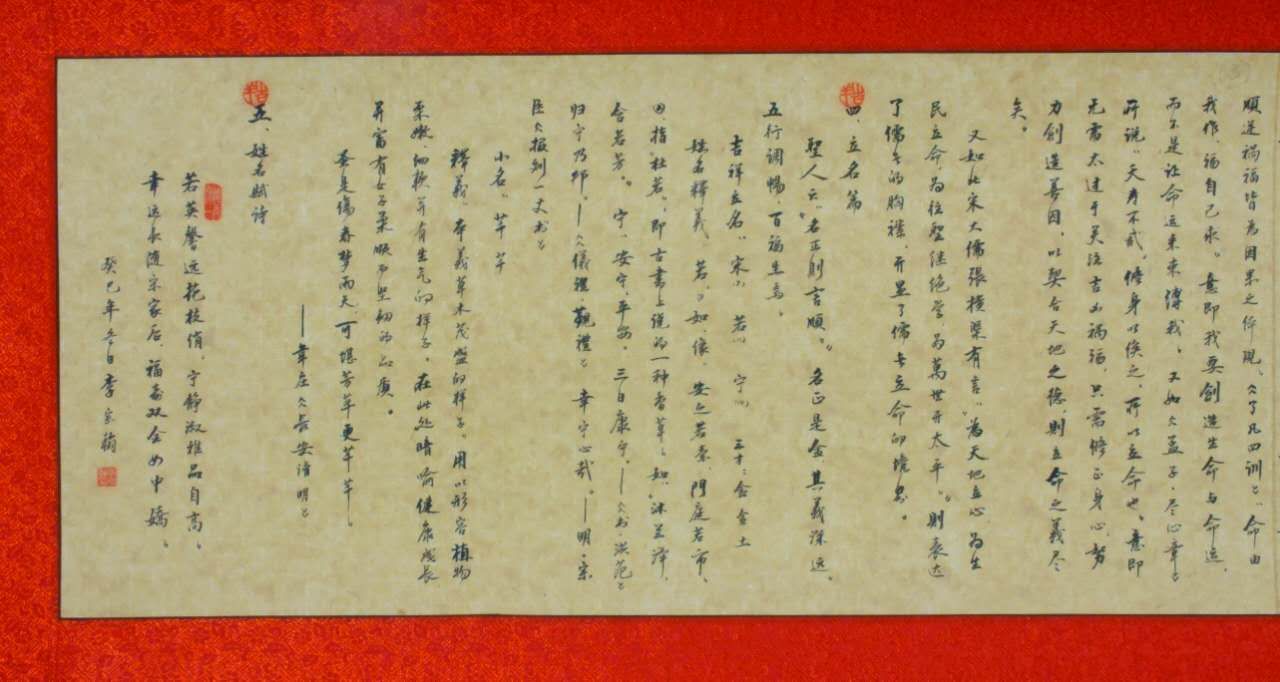 顺逆祸福皆为因果之体现。《了凡四训》：命由
我作，福自己求。意即我要创造生命与命运，
而不是让命运来束缚我。又如《孟子·尽心章》
所说"夭寿不贰，修身以俟之，所以立命也"，意即
无需太过于关注吉凶祸福，只需修正身心，努
力创造善因，以契合天地之德，则立命之义尽
矣。
又如北宋大儒張横渠有言："为天地立心，为生
民立命，为往聖继绝学，为萬世开太平。"则表达
了儒者的胸襟，开显了儒者立命的境界。
四、立名篇
聖人云："名正则言顺。"名正是金，其義深远。
五行调暢，百福生焉。
吉祥立名：宋 若 宁 金金土
姓名釋義 若：如、像，安之若素、門庭若市，
四指杜若，即古書上说的一种香草，如"沐兰泽，
含若芳。" 宁：安宁，平安。三曰康宁。——《书·洪范》
归宁乃邦。——《儀禮·觐禮》 幸宁心哉。——明·宗
臣《报刘一丈书》
小名：芊芊
釋義：本義草木茂盛的样子。用以形容植物
柔嫩、细软并有生气的样子。在此处暗喻健康成长
并富有女子柔顺而坚韧的品质。
早是傷春梦雨天，可堪芳草更芊芊。
——韋庄《長安清明》
五、姓名赋诗
若英馨远花枝俏，宁静淑雅品自高。
幸运长随宋家后，福嘉双全女中嬌。
癸巳年冬日李宗